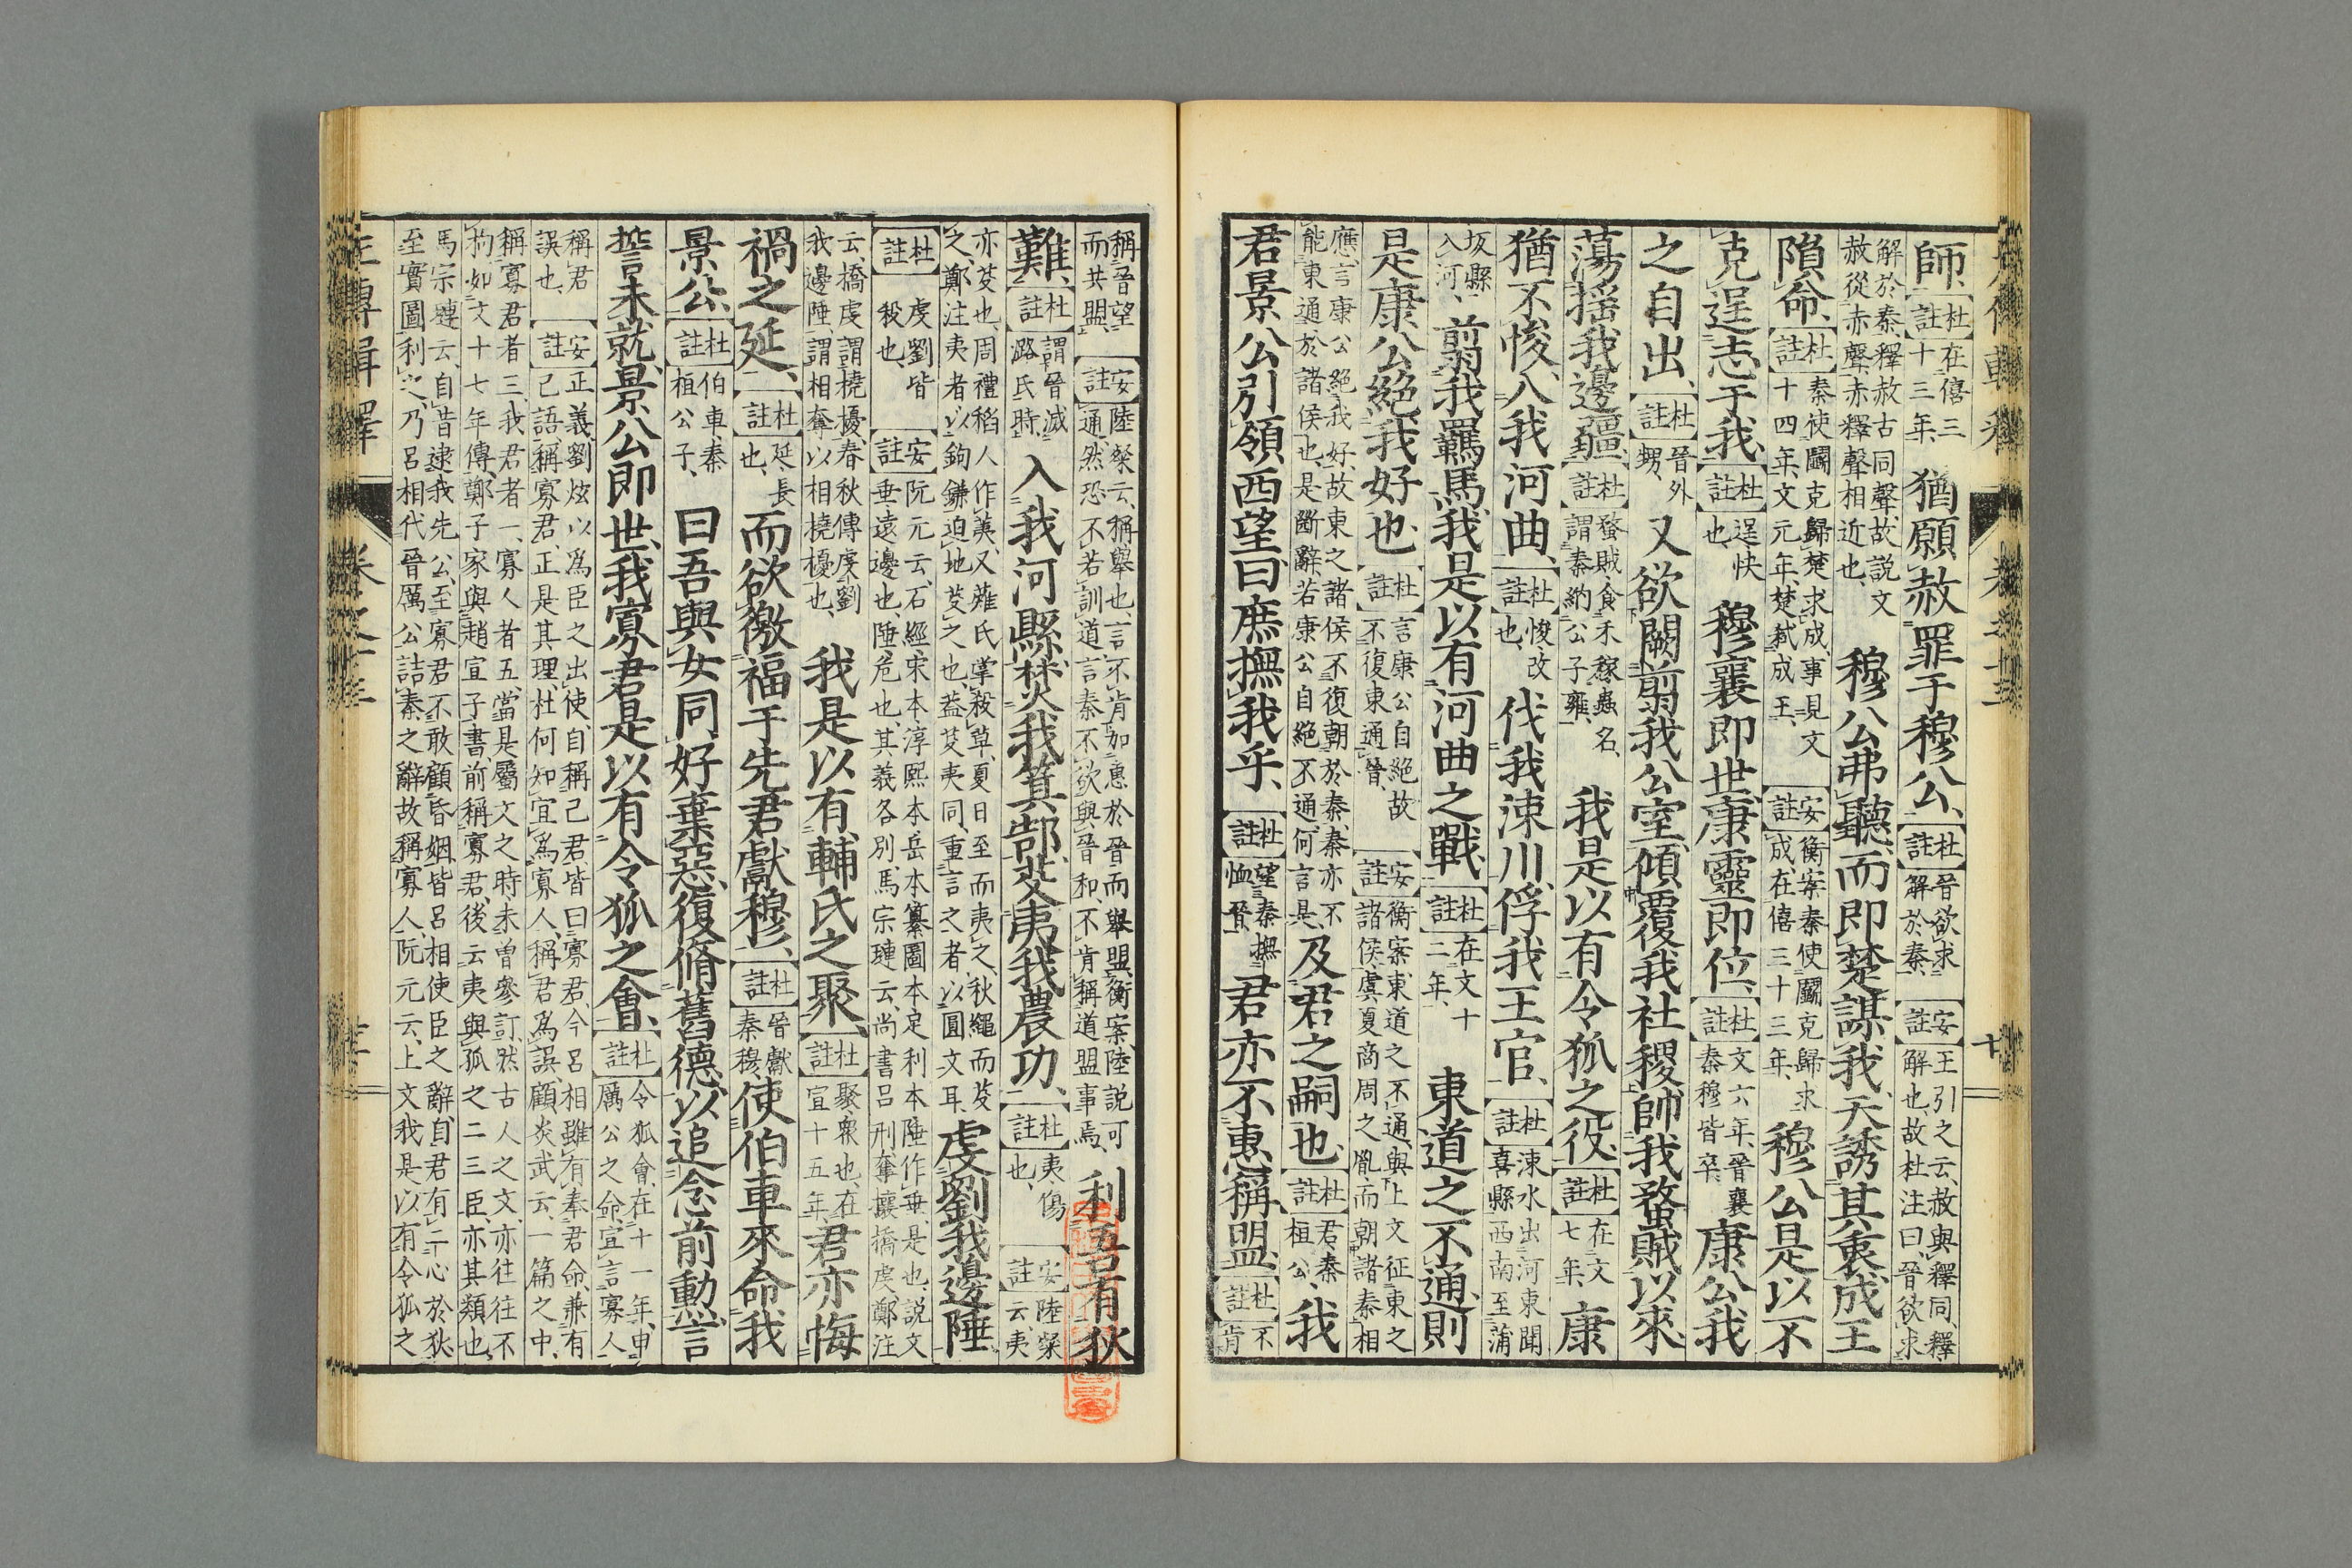 師、【杜註】在僖三十三年、猶願赦罪于穆公、【杜註】晉欲求解於秦、【安註】王引之云、赦與釋同、釋解也、故杜注曰、晉欲求
解於秦、釋赦古同聲、故説文赦從赤聲、赤釋聲相近也、穆公弗聽、而即楚謀我、天誘其衷、成王
隕命、【杜註】秦使鬭克歸楚求成、事見文十四年、文元年、楚弑成王、【安註】衡案、秦使鬭克歸求成、在僖三十三年、穆公是以不
克逞志于我、【杜註】逞快也、穆襄即世、康靈即位、【杜註】文六年、晉襄秦穆皆卒、康公我
之自出、【杜註】晉外甥、又欲闕翦我公室、傾覆我社稷、帥我蝥賊、以來
蕩搖我邊疆、【杜註】蝥賊、食禾稼蟲名、謂秦納公子雍、我是以有令狐之役、【杜註】在文七年、康
猶不悛、入我河曲、【杜註】悛、改也、伐我涑川、俘我王官、【杜註】涑水出河東聞喜縣西南至蒲
坂縣入河、翦我羈馬、我是以有河曲之戰、【杜註】在文十二年、東道之不通、則
是康公絶我好也、【杜註】言康公自絶故不復東通晉、【安註】衡案、東道之不通、與上文征東之諸侯、虞夏商周之胤、而朝諸秦相
應、言康公絶我好、故東之諸侯不復朝於秦、秦亦不能東通於諸侯也、是斷辭、若康公自絶不通、何言是、及君之嗣也、【杜註】君、秦桓公、我
君景公引領西望曰、庶撫我乎、【杜註】望秦撫恤晉、君亦不惠稱盟、【杜註】不肯
稱晉望而共盟、【安註】陸粲云、稱舉也、言不肯加惠於晉而舉盟、衡案、陸説可通、然恐不若訓道、言秦不欲與晉和、不肯稱道盟事焉、利吾有狄
難、【杜註】謂晉滅潞氏時、入我河縣、焚我箕郜、芟夷我農功、【杜註】夷傷也、【安註】陸粲云、夷
亦芟也、周禮稻人作荑、又薙氏掌殺草、夏日至而夷之、秋繩而芟之、鄭注夷者以鉤鎌迫地芟之也、蓋芟夷同、重言之者、以圓文耳、虔劉我邊陲
【杜註】虔劉皆殺也、【安註】阮元云、石經宋本淳熙本岳本纂圖本足利本陲作垂、是也、説文垂遠邊也、陲危也、其義各別、馬宗璉云、尚書呂刑、奪攘撟虔、鄭注
云、撟虔謂撓擾、春秋傳虔劉我邊陲、謂相奪以相撓擾也、我是以有輔氏之聚、【杜註】聚衆也、在宣十五年、君亦悔
禍之延、【杜註】延、長也、而欲徼福于先君獻穆、【杜註】晉獻秦穆、使伯車來命我
景公、【杜註】伯車、秦桓公子、曰吾與女同好棄惡、復脩舊德、以追念前勳、言
誓未就、景公即世、我寡君是以有令狐之會、【杜註】令狐會、在十一年、申厲公之命、宜言寡人
稱君誤也、【安註】正義、劉炫以爲臣之出使、自稱己君、皆曰寡君、今呂相雖有奉君命、兼有己語、稱寡君、正是其理、杜何知宜爲寡人、稱君爲誤、顧炎武云、一篇之中、
稱寡君者三、我君者一、寡人者五、當是屬文之時、未曾參訂、然古人之文、亦往往不拘、如文十七年傳、鄭子家與趙宣子書、前稱寡君、後云夷與孤之二三臣、亦其類也、
馬宗璉云、自昔逮我先公、至寡君不敢顧昏姻、皆呂相使臣之辭、自君有二心於狄、至實圖利之、乃呂相代晉厲公詰秦之辭、故稱寡人、阮元云、上文我是以有令狐之
左傳輯釋　卷之十三